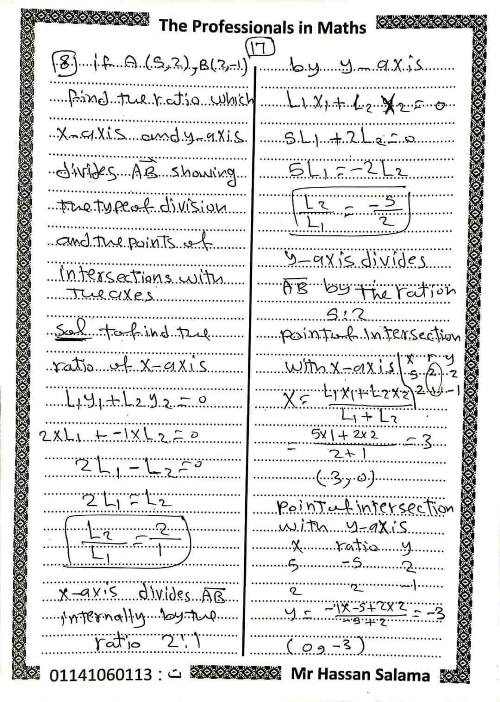 The Professionals in Maths
17
8) if A (5,2), B(2,-1)
find the ratio which
x-axis and y-axis
divides AB showing
the type of division
and the points of
intersections with
the axes
sol to find the
ratio of x-axis
L₁y₁+L₂y₂=0
2xL₁ + -1xL₂=0
2L₁-L₂=0
2L₁=L₂
L₂/L₁ = 2/1
x-axis divides AB
internally by the
ratio 2:1
by y-axis
L₁x₁+L₂x₂=0
5L₁+2L₂=0
5L₁=-2L₂
L₂/L₁ = -5/2
y-axis divides
AB by the ration
5:2
point of intersection
with x-axis
x r y
5 2 2
2 1 -1
X= L₁x₁+L₂x₂/L₁+L₂
= 5x1+2x2/2+1 =3
(3,0)
point of intersection
with y-axis
x ratio y
5 -5 2
2 2 -1
y= -1x-5+2x2/-5+2 =-3
(0,-3)
01141060113 : ت
Mr Hassan Salama